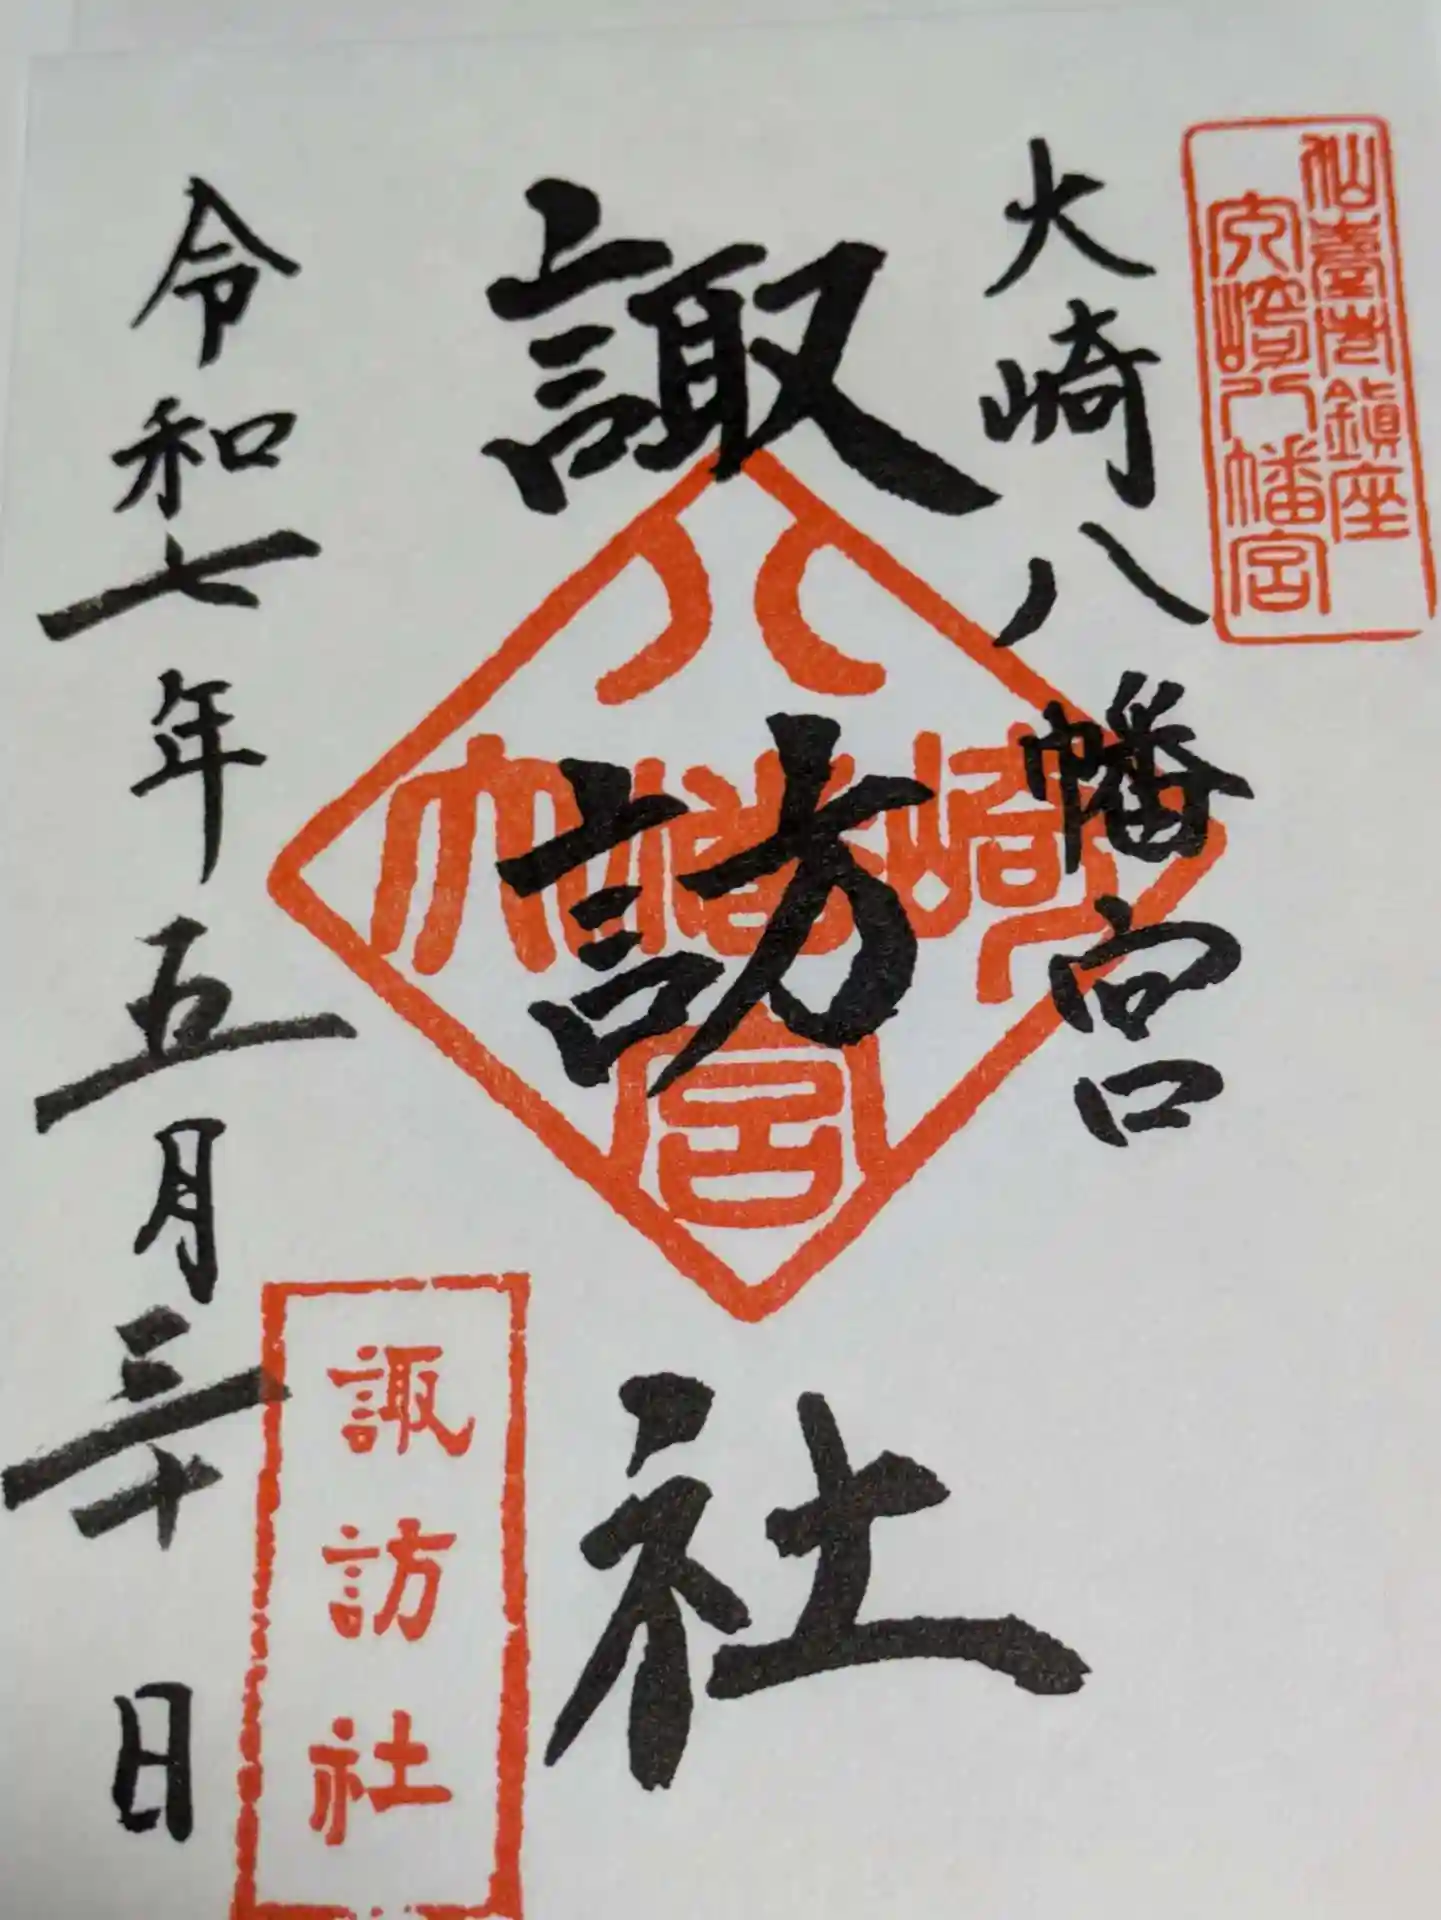 仙臺总鎮座
大崎八幡宮
大崎八幡宮
諏訪社
八幡大崎宮
諏訪社
令和七年五月三十日